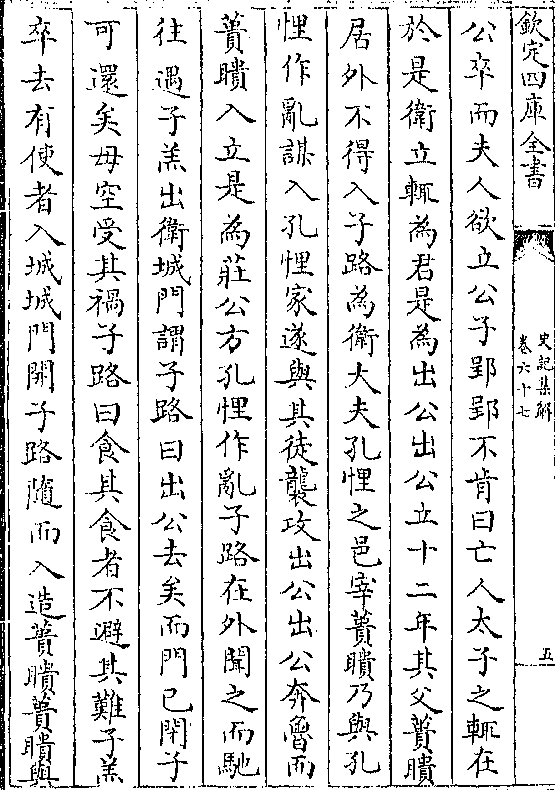 欽定四庫全書
史記集解
卷六十七
五
公卒而夫人欲立公子郢郢不肯曰亡人太子之輒在
於是衛立輒為君是為出公出公立十二年其父蕢聵
居外不得入子路為衛大夫孔悝之邑宰蕢聵乃與孔
悝作亂謀入孔悝家遂與其徒襲攻出公出公奔魯而
蕢聵入立是為莊公方孔悝作亂子路在外聞之而馳
往遇子羔出衛城門謂子路曰出公去矣而門已閉子
可還矣毋空受其禍子路曰食其食者不避其難子羔
卒去有使者入城城門開子路隨而入造蕢聵蕢聵與